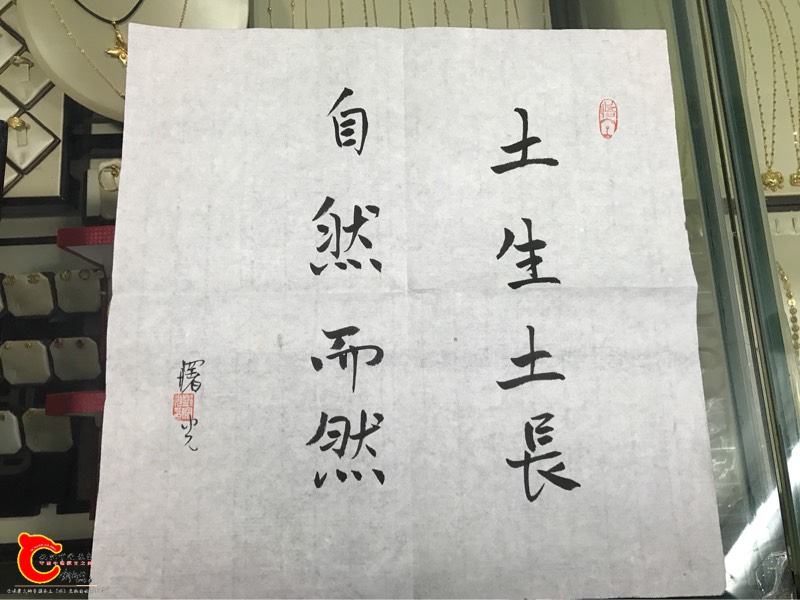 土生土長
自然而然
曙光